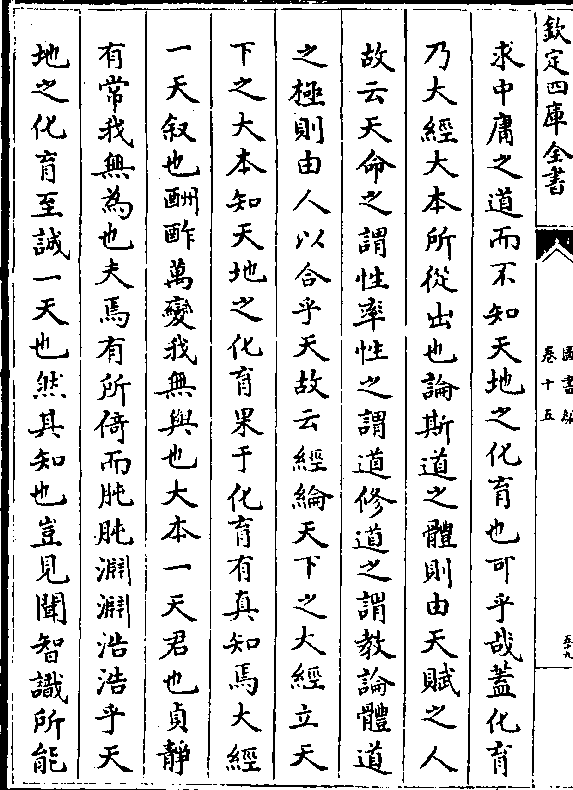 欽定四庫全書
圖書編
卷十五
求中庸之道而不知天地之化育也可乎哉蓋化育
乃大經大本所從出也論斯道之體則由天賦之人
故云天命之謂性率性之謂道修道之謂教論體道
之極則由人以合乎天故云經綸天下之大經立天
下之大本知天地之化育果于化育有真知焉大經
一天叙也酬酢萬變我無與也大本一天君也貞靜
有常我無為也夫焉有所倚而肫肫淵淵浩浩乎天
地之化育至誠一天也然其知也豈見聞智識所能